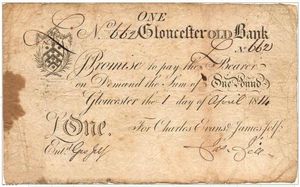 ONE
No. 662 Gloucester OLD Bank
No 662
I Promise to pay the Bearer
on Demand the Sum of One Pound
Gloucester the 1 day of April 1814
£ One. For Charles Evans & James Jelf
Entd. Geo Jelf
Jas. Jelf